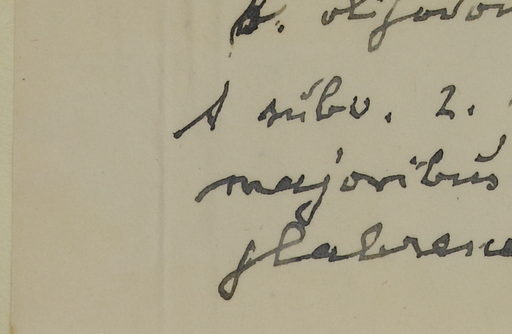 A. oligodon
A subv. 2.
majoribus
glabresce